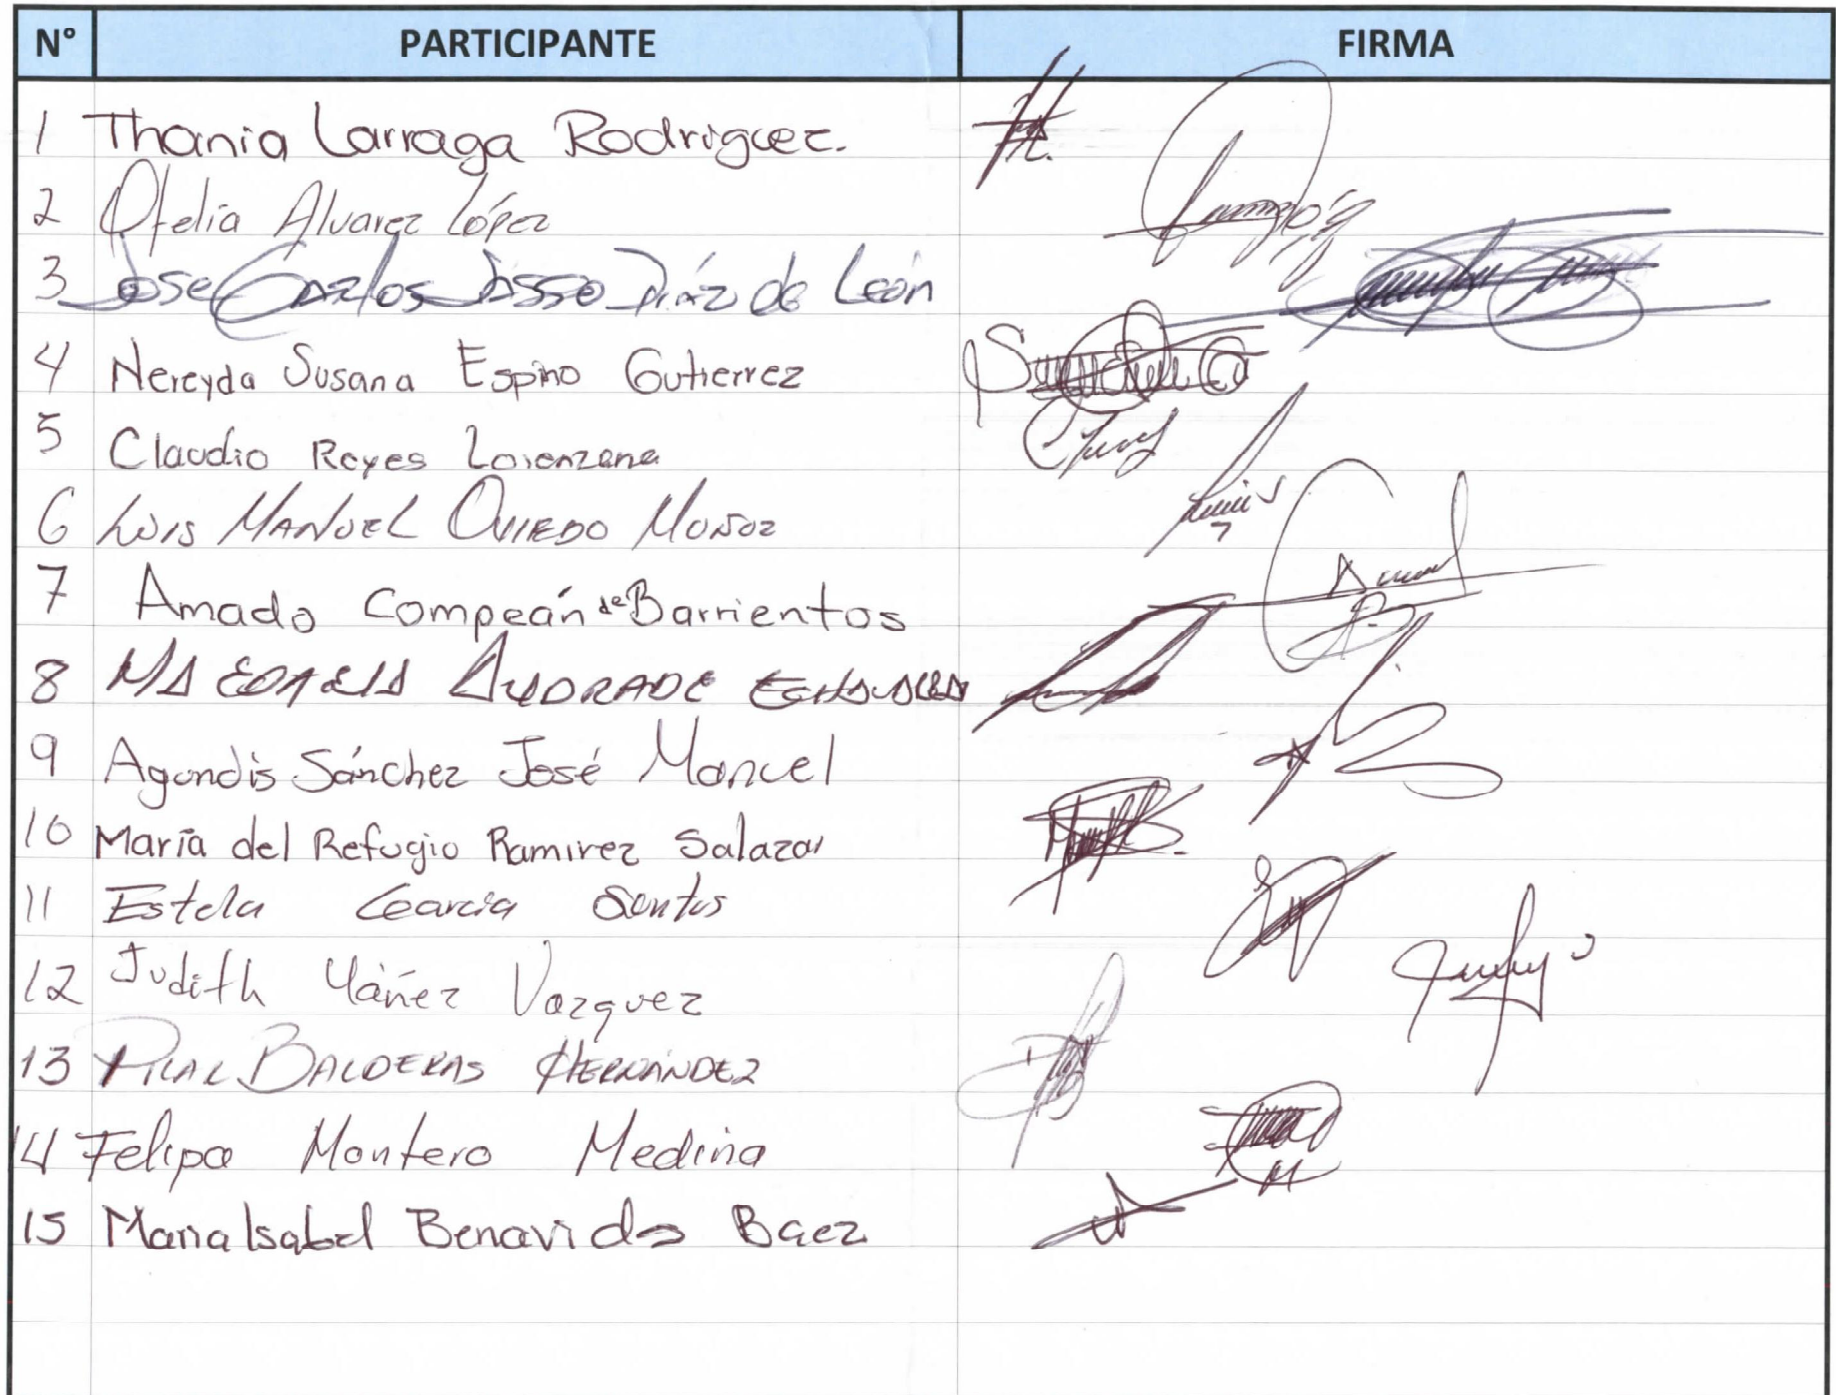 N° PARTICIPANTE FIRMA
1 Thania Larraga Rodriguez.
2 Ofelia Alvarez López
3 Jose Carlos Jasso Diáz de León
4 Nereyda Susana Espino Gutierrez
5 Claudio Reyes Lorenzana
6 LUIS MANUEL OVIEDO MUÑOZ
7 Amado Compeán de Barrientos
8 MA ANDRADE
9 Agundis Sánchez José Manuel
10 María del Refugio Ramirez Salazar
11 Estela Garcia Santos
12 Judith Yáñez Vazquez
13 PILAR BALDERAS HERNÁNDEZ
14 Felipa Montero Medina
15 Maria Isabel Benavides Baez